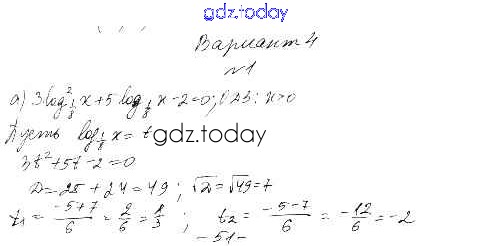 gdz.today
Вариант 4
№1
а) 3log²_{1/8} x + 5 log_{1/8} x - 2 = 0; ОДЗ: x>0
Пусть log_{1/8} x = t
gdz.today
3t² + 5t - 2 = 0
D = 25 + 24 = 49; √D = √49 = 7
t₁ = (-5+7)/6 = 2/6 = 1/3; t₂ = (-5-7)/6 = -12/6 = -2
- 51 -